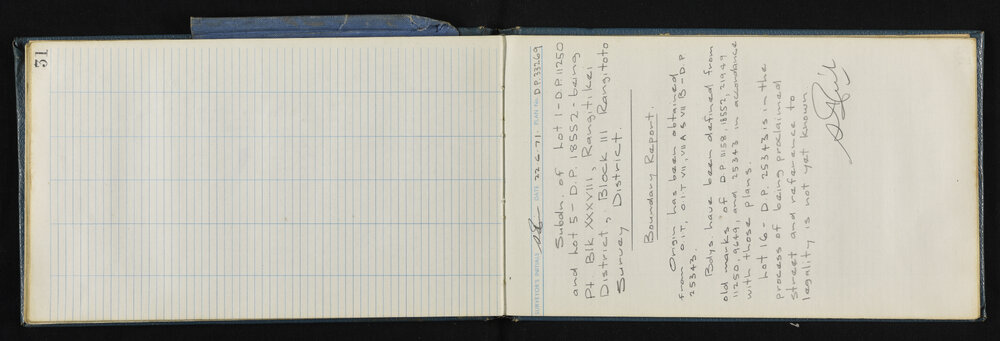 31
SURVEYORS INITIALS DATE 22-6-71. PLAN No. D.P. 33269
Subdn. of Lot 1 - D.P. 11250
and Lot 5 - D.P. 18552 - being
Pt Blk XXXVIII, Rangitikei
District, Block III Rangitoto
Survey District.
Boundary Report.
Origin has been obtained
from O.I.T, O.I.T VII, VII A & VII B - D.P
25343.
Bdys. have been defined from
old marks of D.P 1158, 18552, 21949
11250, 9649, and 25343 in accordance
with those plans.
Lot 16 - D.P. 25343 is in the
process of being proclaimed
street and reference to
legality is not yet known